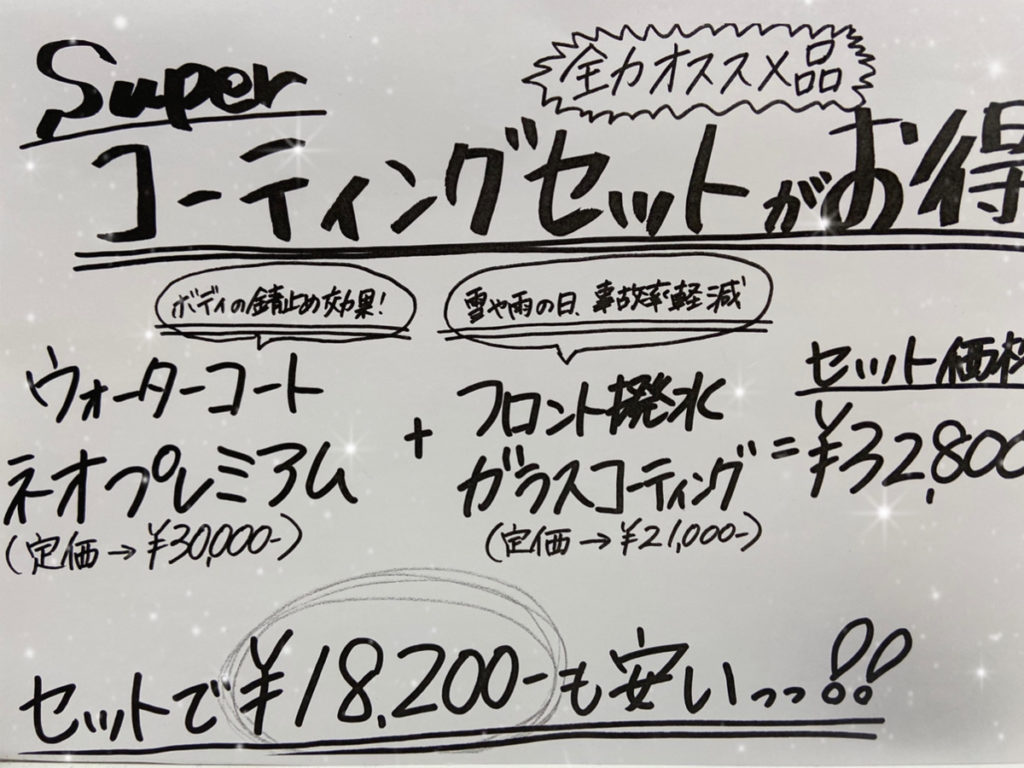 Super
全力オススメ品
コーティングセットがお得
ボディの錆止め効果!
雪や雨の日、事故率軽減
ウォーターコート
ネオプレミアム
(定価→¥30,000-)
+
フロント撥水
ガラスコーティング
(定価→¥21,000-)
セット価格
=¥32,800
セットで¥18,200-も安いっっ!!